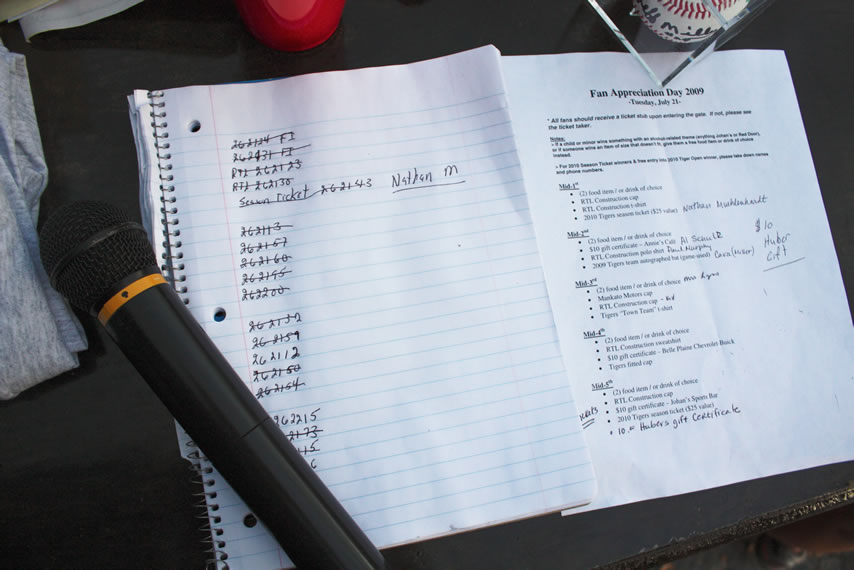 262124 FJ
262431 FJ
RTL 262123
RTL 262130
Season Ticket 262143 Nathan M
262113
262157
262160
262195
262200
262132
262159
262112
262150
262154
262215
2173
115
6
Fan Appreciation Day 2009
-Tuesday, July 21-
* All fans should receive a ticket stub upon entering the gate. If not, please see
the ticket taker.
Notes:
> If a child or minor wins something with an alcohol-related theme (anything Johan's or Red Door),
or if someone wins an item of size that doesn't fit, give them a free food item or drink of choice
instead.
> For 2010 Season Ticket winners & free entry into 2010 Tiger Open winner, please take down names
and phone numbers.
Mid-1st
• (2) food item / or drink of choice
• RTL Construction cap
• RTL Construction t-shirt
• 2010 Tigers season ticket ($25 value) Nathan Muehlenhardt
Mid-2nd
• (2) food item / or drink of choice
• $10 gift certificate – Annie's Café Al Schultz
• RTL Construction polo shirt Paul Murphy
• 2009 Tigers team autographed bat (game-used) Cara (Huber)
$10
Huber
Gift
Mid-3rd
• (2) food item / or drink of choice
• Mankato Motors cap
• RTL Construction cap - Kid
• Tigers "Town Team" t-shirt
Mid-4th
• (2) food item / or drink of choice
• RTL Construction sweatshirt
• $10 gift certificate – Belle Plaine Chevrolet Buick
• Tigers fitted cap
Mid-5th
• (2) food item / or drink of choice
• RTL Construction cap
• $10 gift certificate – Johan's Sports Bar
• 2010 Tigers season ticket ($25 value)
• 10.00 Hubers gift Certificate